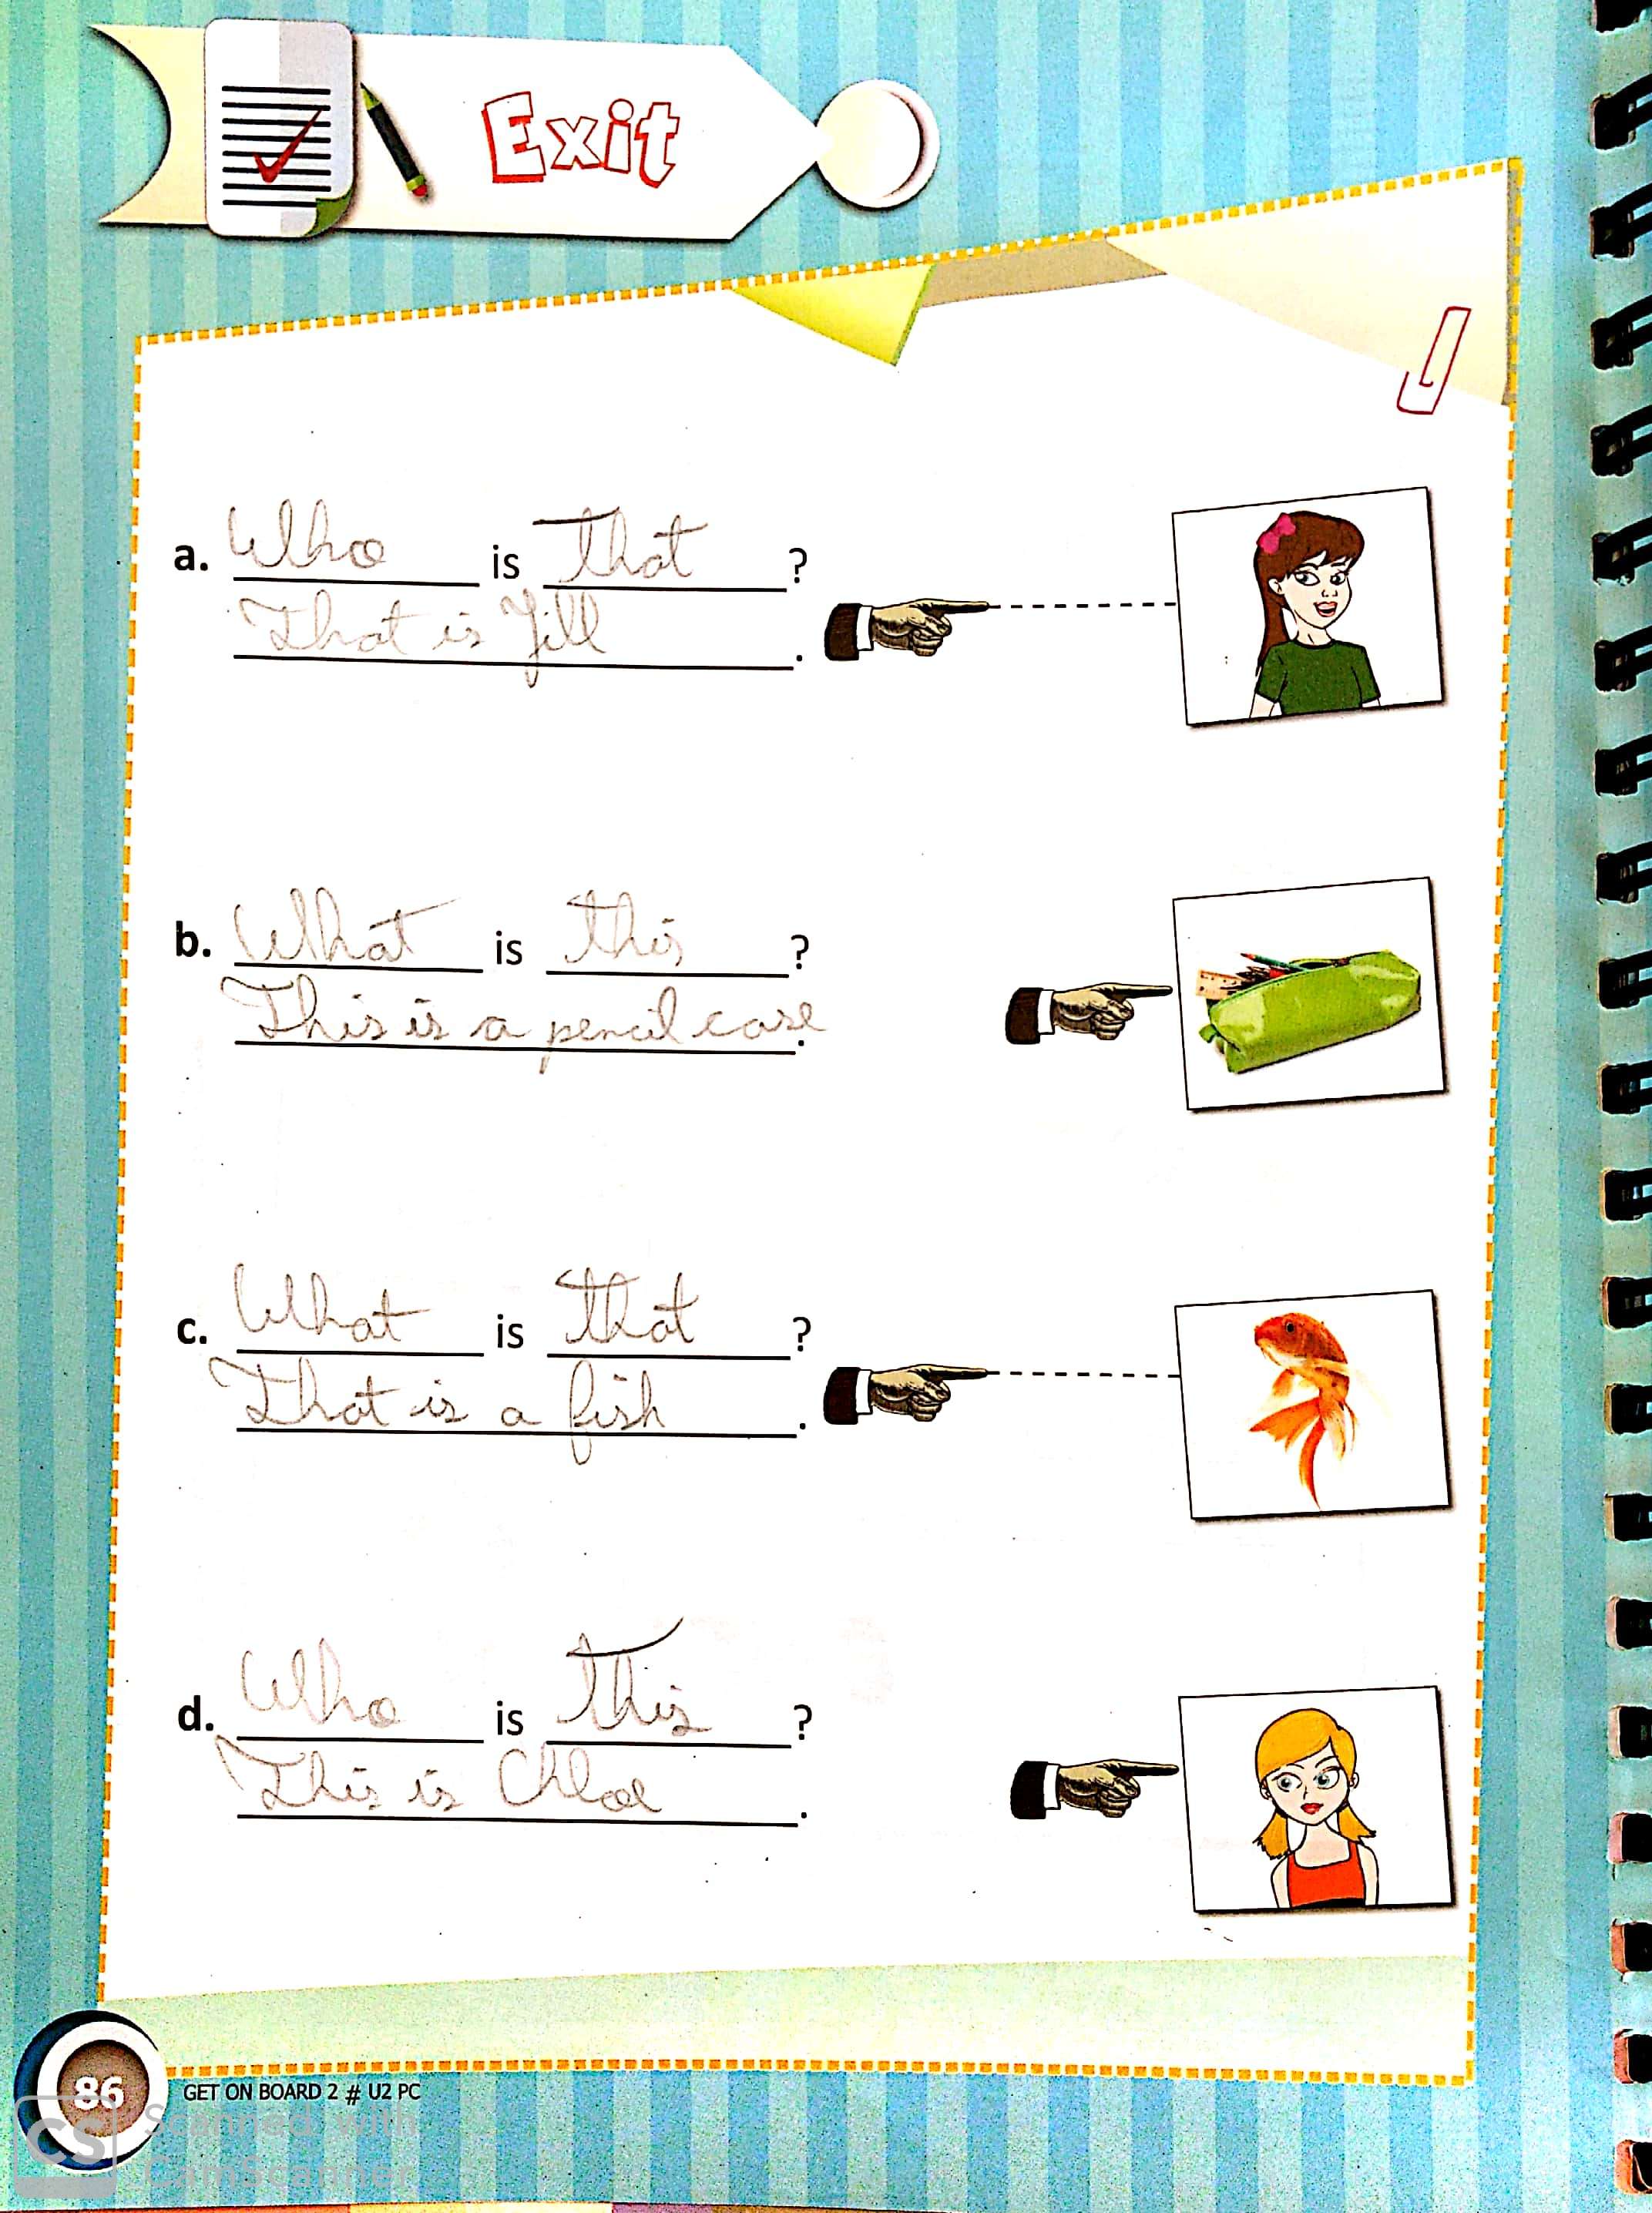 Exit
a. Who is that ?
That is Jill .
b. What is this ?
This is a pencil case .
c. What is that ?
That is a fish .
d. Who is this ?
This is Chloe .
86 GET ON BOARD 2 # U2 PC
CS Scanned with
CamScanner